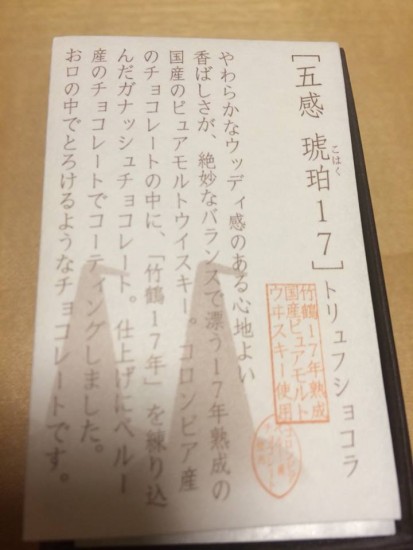 [五感 琥珀17]トリュフショコラ
こはく
竹鶴17年熟成
国産ピュアモルト
ウヰスキー使用
やわらかなウッディ感のある心地よい
香ばしさが、絶妙なバランスで漂う17年熟成の
国産のピュアモルトウイスキー。コロンビア産
のチョコレートの中に、「竹鶴17年」を練り込
んだガナッシュチョコレート。仕上げにペルー
産のチョコレートでコーティングしました。
お口の中でとろけるようなチョコレートです。